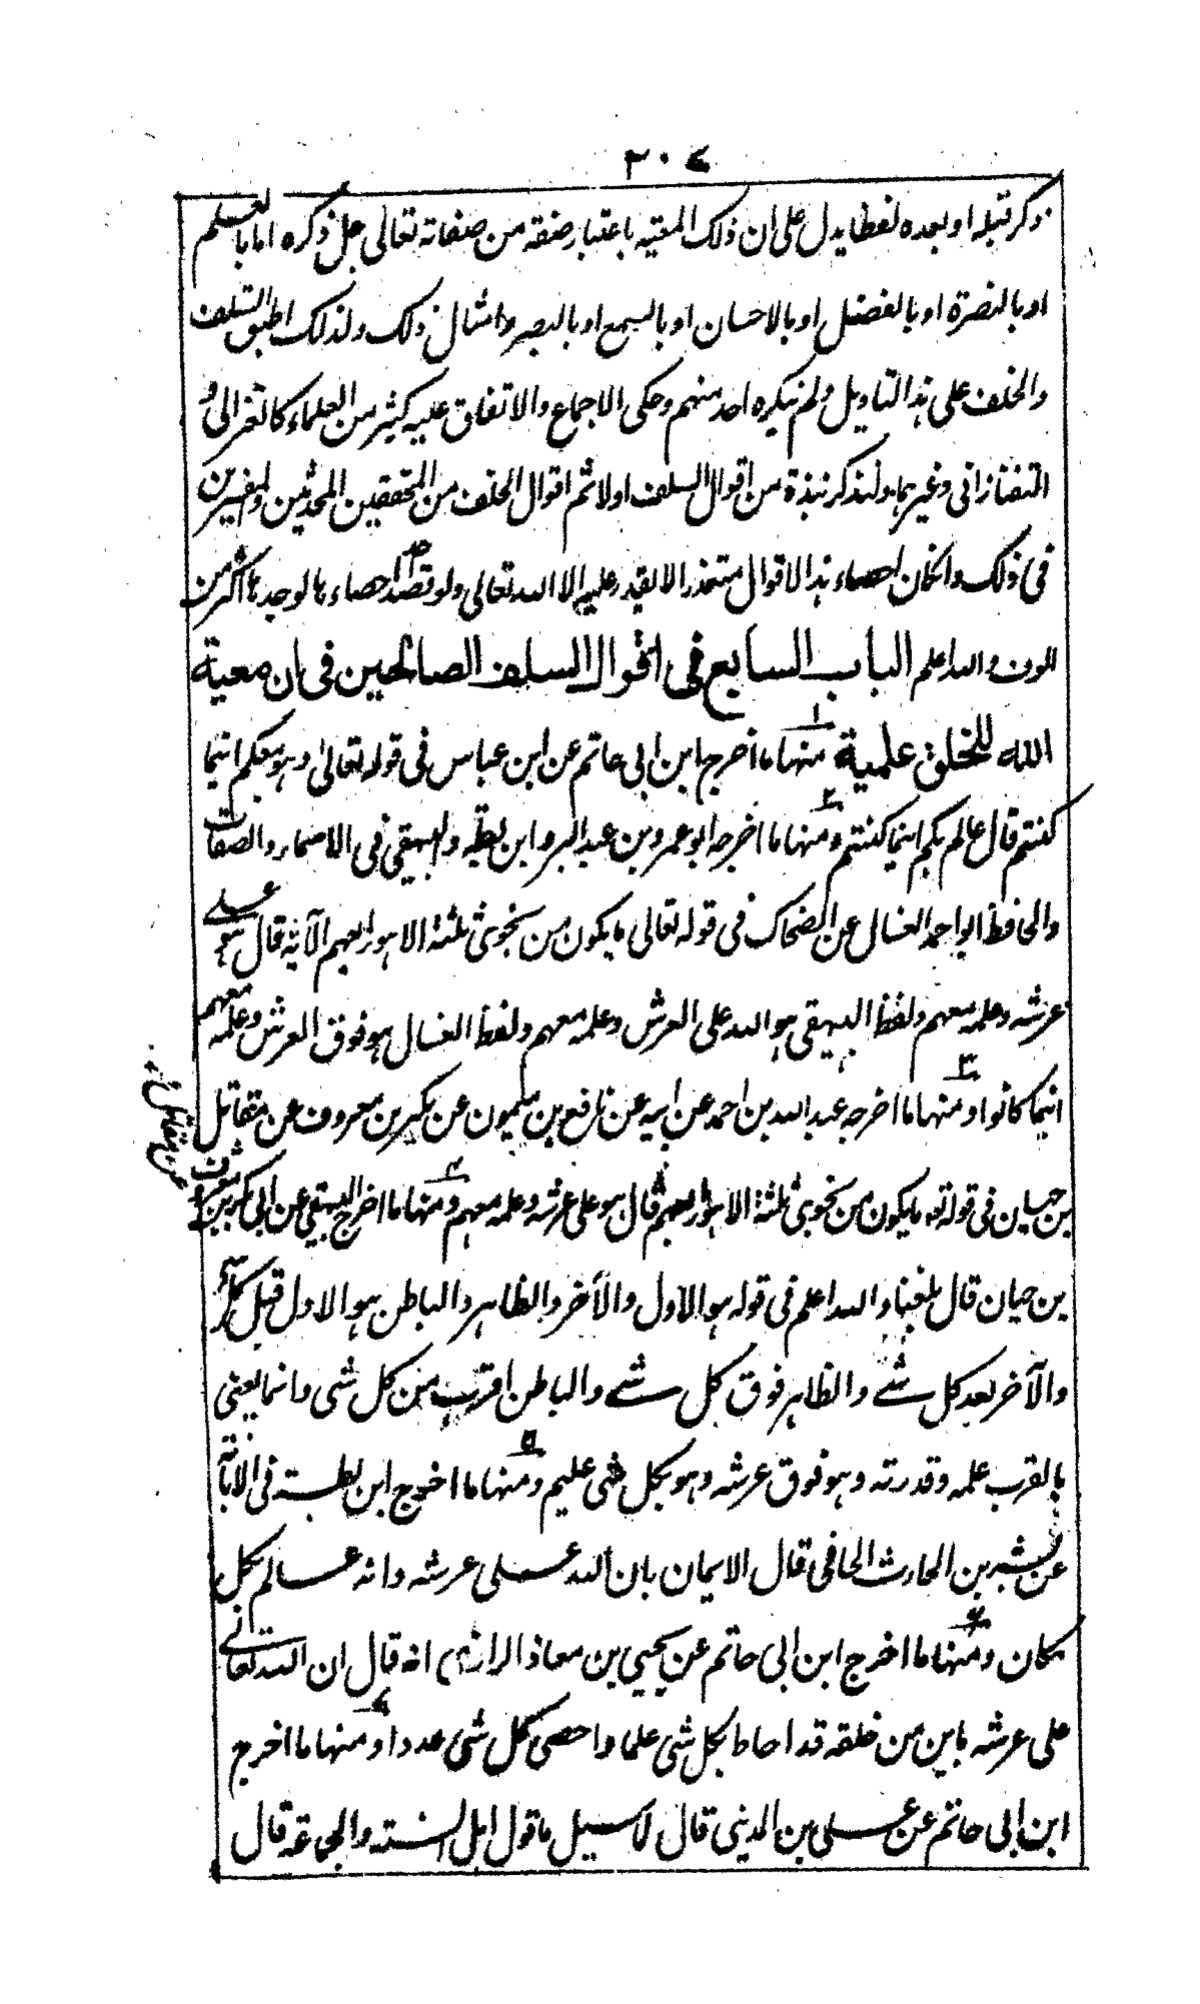 ٣٠٤
ذكر قبله او بعده لفظا يدل على ان ذلك المعية باعتبار صفة من صفاته تعالى جل ذكره اما بالعلم
او بالنصرة او بالفضل او بالاحسان او بالسمع او بالبصر وامثال ذلك ولذلك اطبق السلف
والخلف على هذا التاويل ولم ينكره احد منهم وحكى الاجماع والاتفاق عليه كثير من العلماء كالغزالى و
التفتازانى وغيرهما ولنذكر نبذة من اقوال السلف اولا ثم اقوال الخلف من المحققين المحدثين والمفسرين
فى ذلك وانكان احصاء هذا الاقوال متعذر الا يقدر عليه الا الله تعالى ولو قصد احد احصاءها لوجدها اكثر من
الوف والله اعلم الباب السابع فى اقوال السلف الصالحين فى بان معية
الله للخلق علمية ١ منها ما اخرج ابن ابى حاتم عن ابن عباس فى قوله تعالى وهو معكم اينما
كنتم قال عالم بكم اينما كنتم ٢ ومنها ما اخرجه ابو عمرو بن عبد البر وابن بطة والبيهقى فى الاسماء والصفات
والحافظ ابو احمد العسال عن الضحاك فى قوله تعالى ما يكون من نجوى ثلثة الا هو رابعهم الآية قال هو على
عرشه وعلمه معهم ولفظ البيهقى هو الله على العرش وعلمه معهم ولفظ العسال هو فوق العرش وعلمه معهم
اينما كانوا ٣ ومنها ما اخرجه عبد الله بن احمد عن ابيه عن نافع بن ميمون عن بكير بن معروف عن مقاتل
بن حيان فى قوله تع ما يكون من نجوى ثلثة الا هو رابعهم قال هو على عرشه وعلمه معهم ٤ ومنها ما اخرج البيهقى عن ابى بكير بن معروف
عن مقاتل
بن حيان قال بلغنا والله اعلم فى قوله هو الاول والآخر والظاهر والباطن هو الاول قبل كل شئ
والآخر بعد كل شے والظاهر فوق كل شے والباطن اقرب من كل شى وانما يعنى
بالقرب علمه وقدرته وهو فوق عرشه وهو بكل شى عليم ٥ ومنها ما اخرج ابن بطة فى الابانة
عن بشر بن الحارث الحافى قال الايمان بان الله على عرشه وانه عالم بكل
مكان ٦ ومنها ما اخرج ابن ابى حاتم عن يحيى بن معاذ الرازى انه قال ان الله تعالى
على عرشه باين من خلقه قد احاط بكل شى علما واحصى كل شى عددا ٧ ومنها ما اخرج
ابن ابى حاتم عن على بن المدينى قال لا سبيل ما قول اهل السنة والجماعة قال